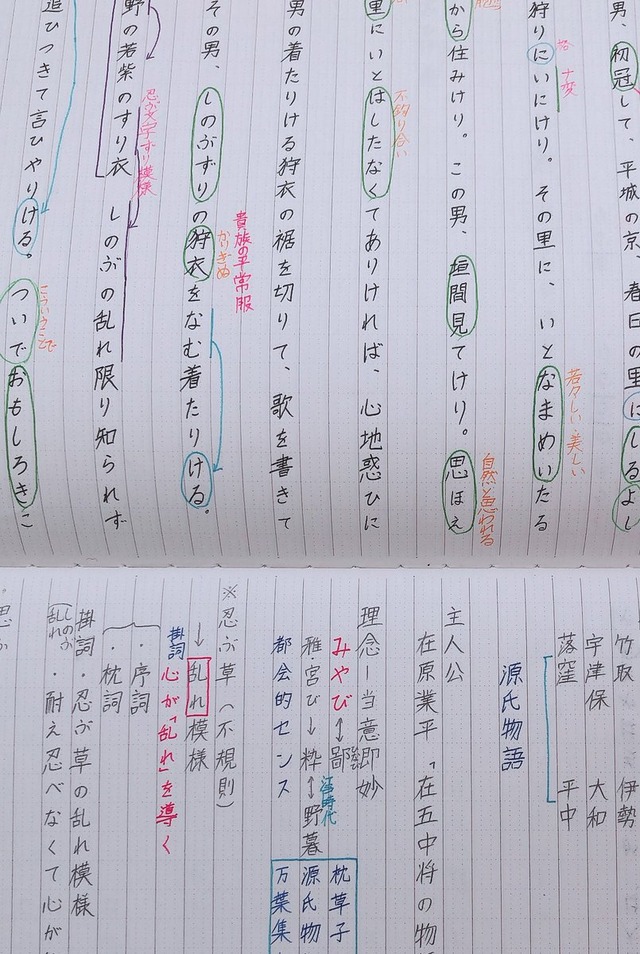 男、初冠して、平城の京、春日の里にしるよし
狩りにいにけり。その里に、いとなまめいたる
格 ナ変
若々しい・美しい
から住みけり。この男、垣間見てけり。思ほえ
自然と思われる
里にいとはしたなくてありければ、心地惑ひに
不釣り合い
男の着たりける狩衣の裾を切りて、歌を書きて
貴族の平常服
その男、しのぶずりの狩衣をなむ着たりける。
かりぎぬ
忍ぶ文字ずり模様
野の若紫のすり衣 しのぶの乱れ限り知られず
追ひつきて言ひやりける。ついでおもしろきこ
こういうことで
竹取 伊勢
宇津保 大和
落窪 平中
源氏物語
主人公
在原業平「在五中将の物
理念ー当意即妙
みやび↔鄙
雅・宮び→粋↔野暮
江戸時代
都会的センス
枕草子
源氏物
万葉集
※忍ぶ草(不規則)
↓
乱れ模様
掛詞 心が「乱れ」を導く
・序詞
・枕詞
掛詞・忍ぶ草の乱れ模様
しのぶ
乱れ
・耐え忍べなくて心が